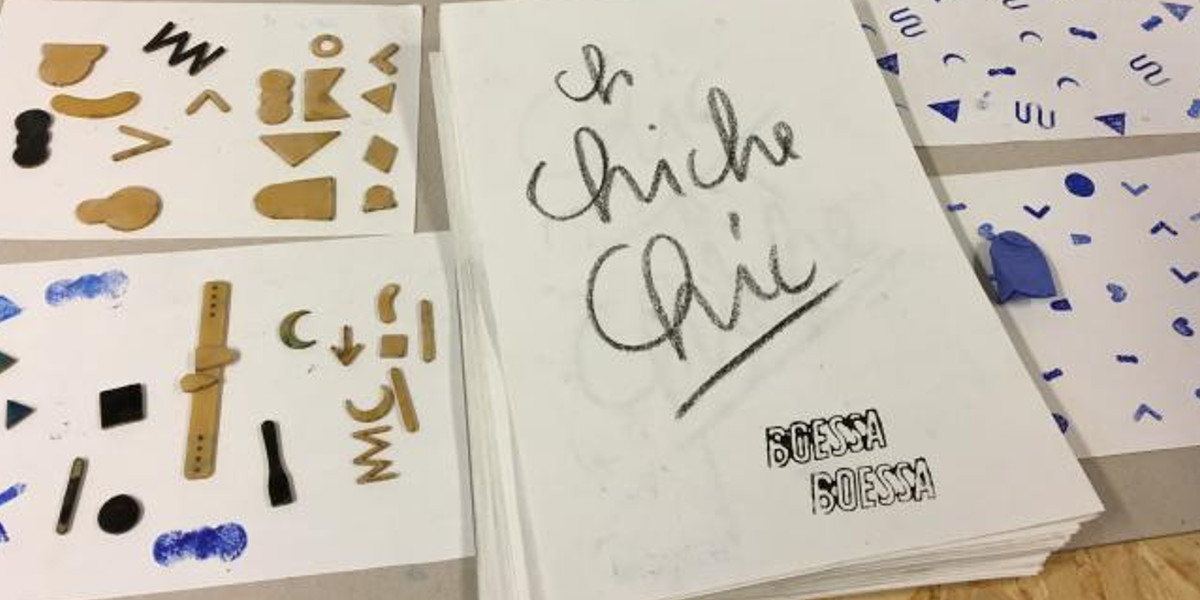 ch
chiche
Chic
BOESSA
BOESSA